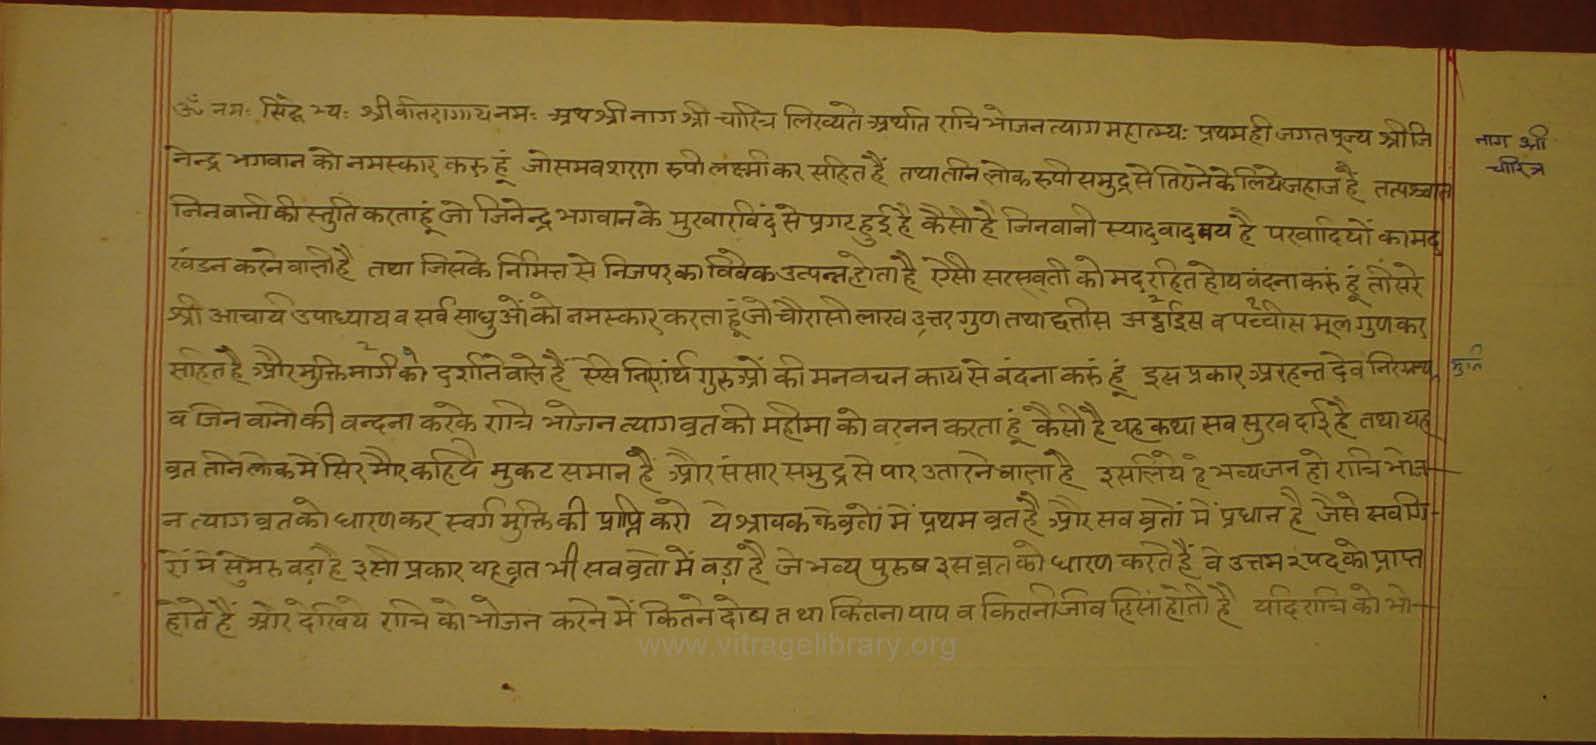 ॐ नमः सिद्धेभ्यः श्री वीतरागाय नमः अथ श्री नाग श्री चारित्र लिख्यते अर्थात रात्रि भोजन त्याग महात्म्यः प्रथम ही जगत पूज्य श्री जि
नेन्द्र भगवान को नमस्कार करू हूं जो समवशरण रुपी लक्ष्मी कर सहित हैं तथा तीन लोक रुपी समुद्र से तिराने के लिये जहाज हैं तत्पश्चात
जिनवानी की स्तुति करता हूं जो जिनेन्द्र भगवान के मुखारविंद से प्रगट हुई है कैसी है जिनवानी स्यादवादमय है परवादियों का मद
खंडन करने वाली है तथा जिसके निमित्त से निजपर का विवेक उत्पन्न होता है ऐसी सरस्वती को मद रहित होय वंदना करुं हूं तीसरे
श्री आचार्य उपाध्याय व सर्व साधुओं को नमस्कार करता हूं जो चौरासी लाख उत्तर गुण तथा छत्तीस अट्ठाईस व पच्चीस मूल गुण कर
सहित है और मुक्ति मार्ग को दर्शाने वाले हैं ऐसे निर्ग्रंथ गुरुओं की मन वचन काय से वंदना करुं हूं इस प्रकार अरहन्त देव
व जिनवानी की वन्दना करके रात्रि भोजन त्याग व्रत की महीमा को वरनन करता हूं कैसी है यह कथा सब सुख दाई है तथा यह
व्रत तीन लोक में सिर मौर कहिये मुकट समान है और संसार समुद्र से पार उतारने वाला है इसलिये हे भव्यजन हो रात्रि भोज
न त्याग व्रत को धारण कर स्वर्ग मुक्ति की प्राप्ति करो ये श्रावक के व्रतों में प्रथम व्रत है और सब व्रतों में प्रधान है जैसे सर्व गि
रों में सुमेरु बड़ा है इसी प्रकार यह व्रत भी सब व्रतो में बड़ा है जे भव्य पुरुष इस व्रत को धारण करते हैं वे उत्तम २ पद को प्राप्त
होते हैं और देखिये रात्रि को भोजन करने में कितने दोष तथा कितना पाप व कितनी जीव हिंसा होती है यदि रात्रि को भो
नाग श्री
चारित्र
www.vitragelibrary.org